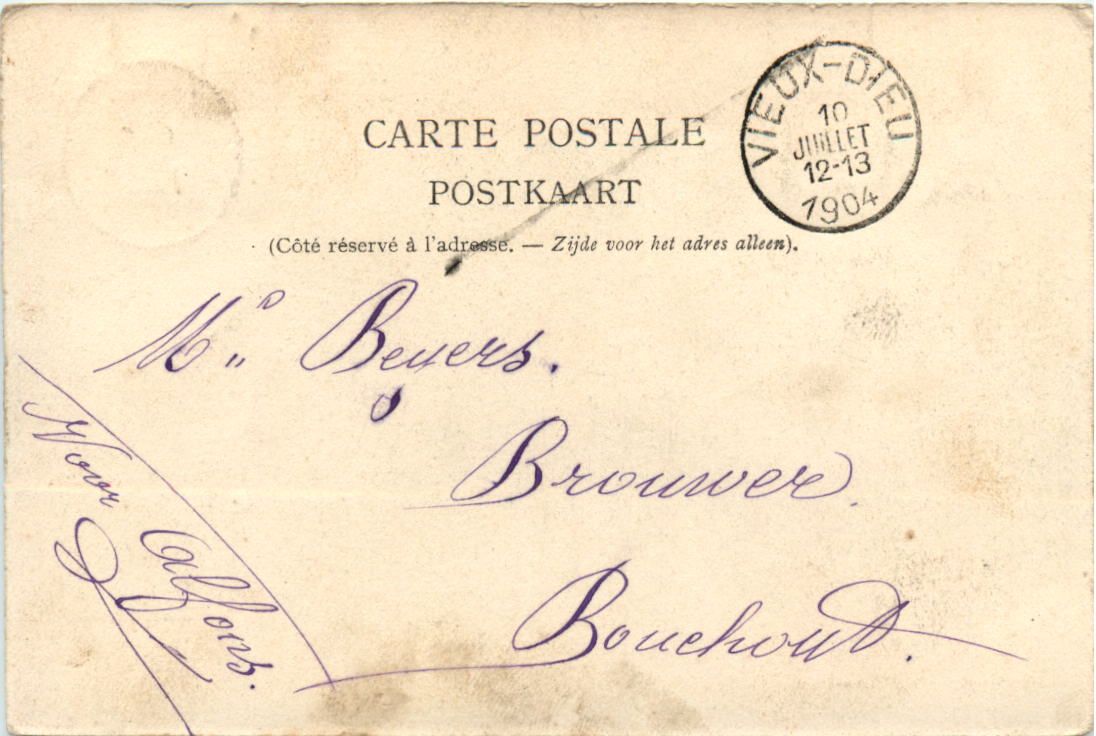 CARTE POSTALE
POSTKAART
(Côté réservé à l'adresse. — Zijde voor het adres alleen).
VIEUX-DIEU
10
JUILLET
12-13
1904
Mr. Beyers.
Brouwer.
Bouchout.
Voor
Alfons.